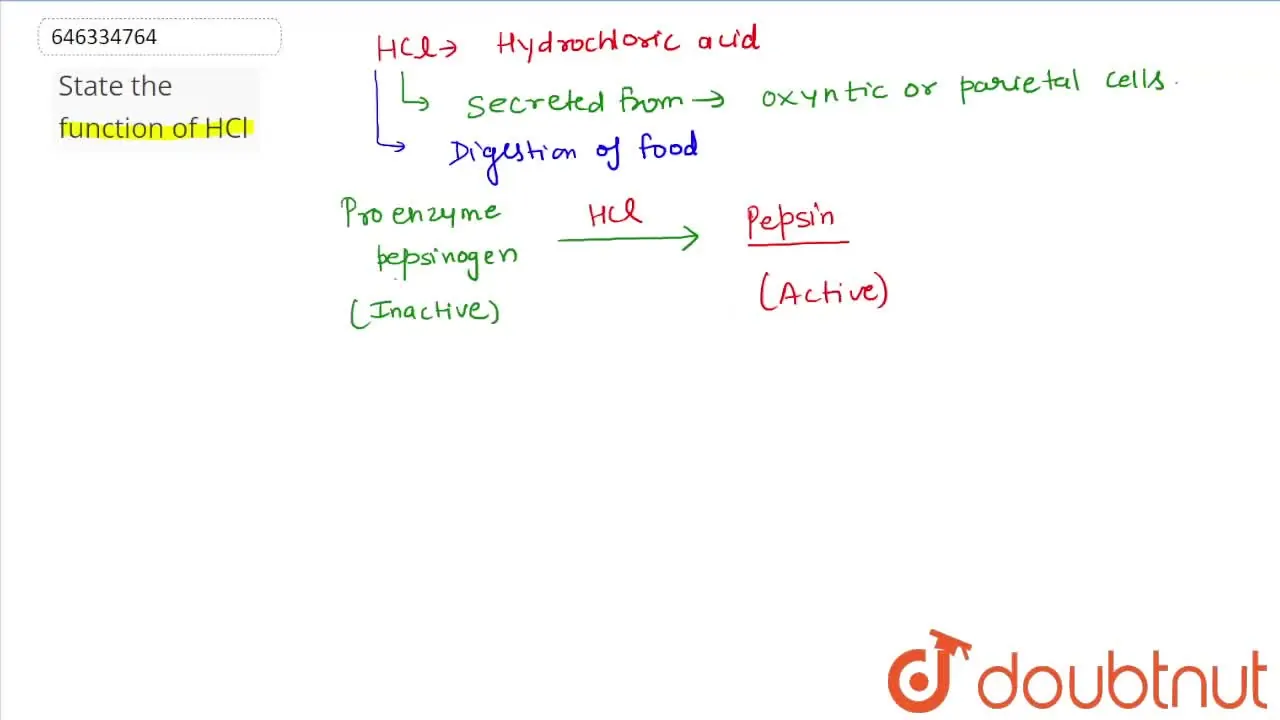 646334764
State the
function of HCl
HCl→ Hydrochloric acid
secreted from → oxyntic or parietal cells.
Digestion of food
Proenzyme
pepsinogen
(Inactive)
HCl
Pepsin
(Active)
doubtnut